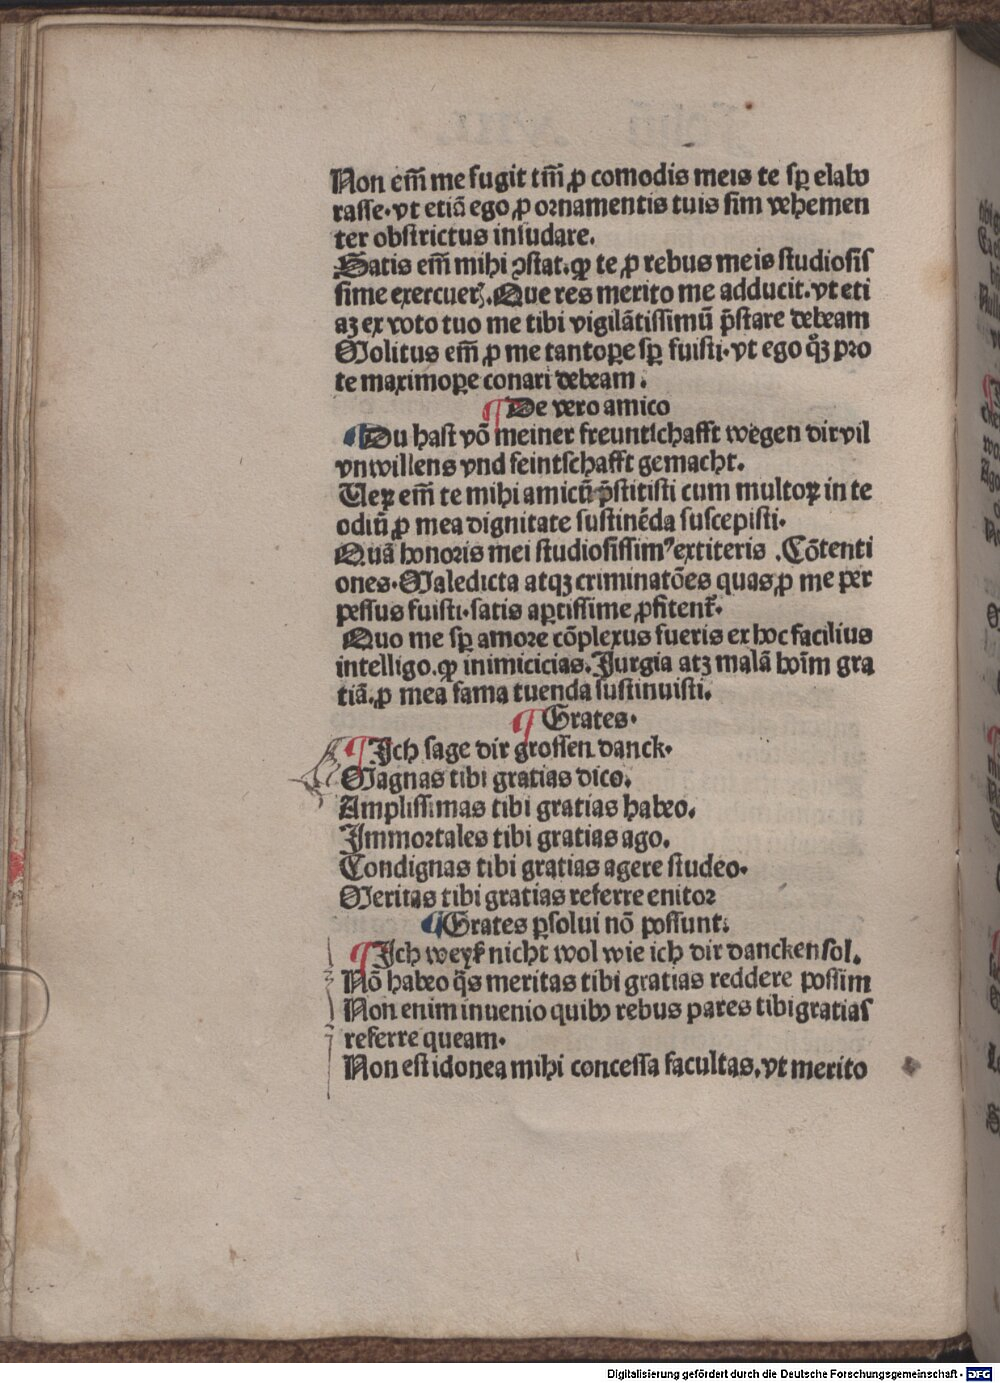 Non em̄ me fugit tm̄ ꝓ comodis meis te sꝑ elabo
rasse. vt etiā ego ꝓ ornamentis tuis sim vehemen
ter obstrictus insudare.
Satis em̄ mihi ꝯstat. ꝙ te ꝓ rebus meis studiosis
sime exercuerꝭ. Que res merito me adducit. vt eti
aꝫ ex voto tuo me tibi vigilātissimū p̄stare debeam
Molitus em̄ ꝓ me tantoꝑe sꝑ fuisti. vt ego qͦꝫ pro
te maximoꝑe conari debeam.
¶ De vero amico
¶ Du hast vō meiner freuntschafft wegen dir vil
vnwillens vnd feintschafft gemacht.
Ueꝝ em̄ te mihi amicū p̄stitisti cum multoꝝ in te
odiū ꝓ mea dignitate sustinēda suscepisti.
Quā honoris mei studiosissimꝰ extiteris. Cōtenti
ones. Maledicta atqꝫ criminatōes quas ꝓ me per
pessus fuisti. satis aꝑtissime ꝓfitent᷑.
Quo me sꝑ amore cōplexus fueris ex hoc facilius
intelligo. ꝙ inimicicias. Jurgia atꝫ malā hoīm gra
tiā. ꝓ mea fama tuenda sustinuisti.
¶ Grates.
¶ Jch sage dir grossen danck.
Magnas tibi gratias dico.
Amplissimas tibi gratias habeo.
Jmmortales tibi gratias ago.
Condignas tibi gratias agere studeo.
Meritas tibi gratias referre enitor
¶ Grates ꝑsolui nō possunt.
¶ Jch weyß nicht wol wie ich dir dancken sol.
Nō habeo q̄s meritas tibi gratias reddere possim
Non enim inuenio quibꝰ rebus pares tibi gratias
referre queam.
Non est idonea mihi concessa facultas. vt merito
Digitalisierung gefördert durch die Deutsche Forschungsgemeinschaft - DFG